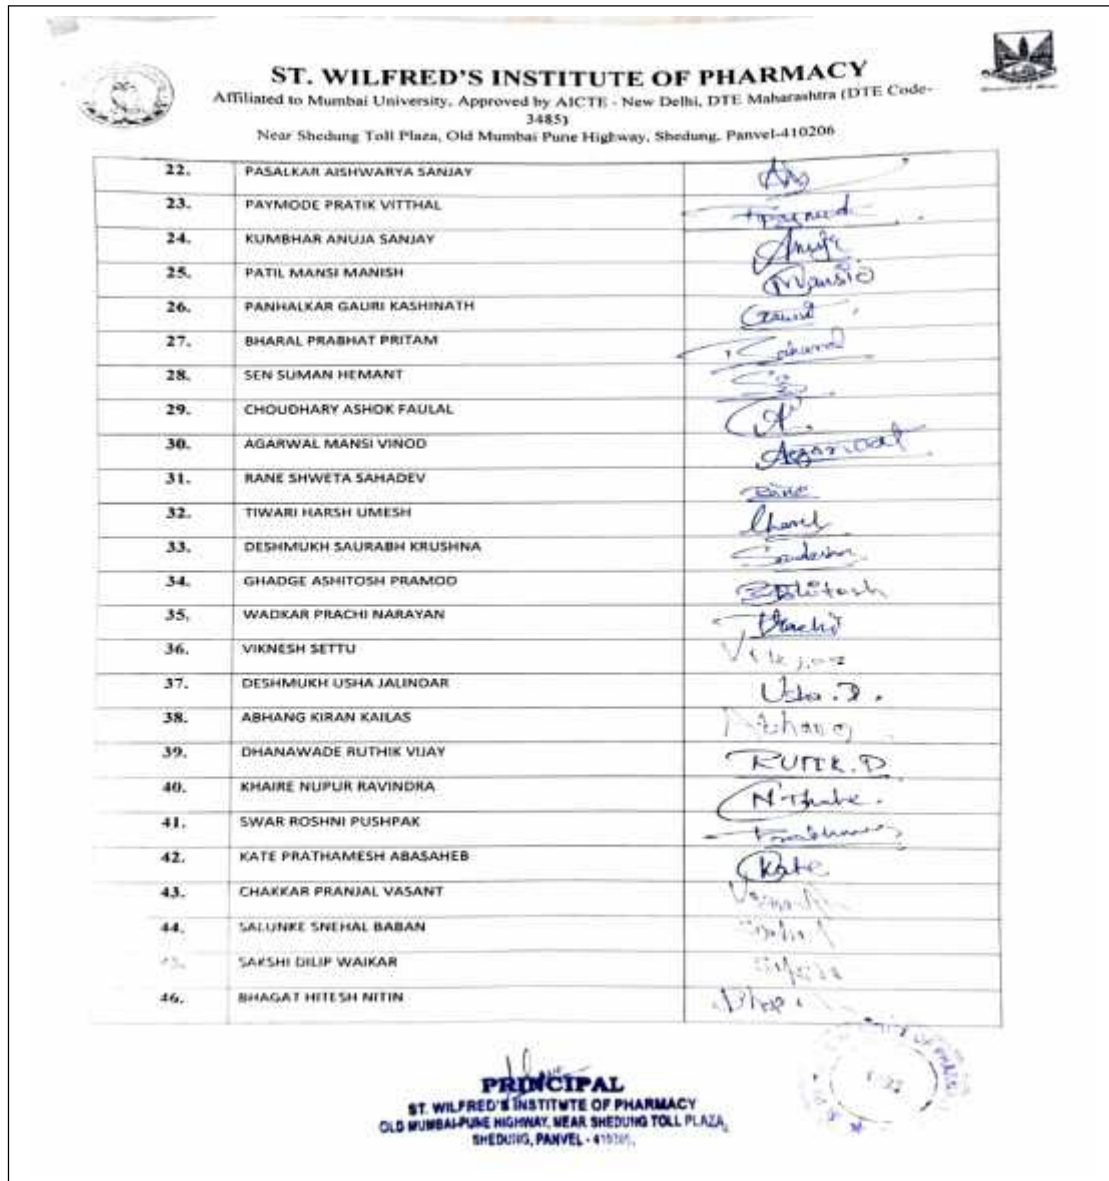 ST. WILFRED'S INSTITUTE OF PHARMACY
Affiliated to Mumbai University, Approved by AICTE - New Delhi, DTE Maharashtra (DTE Code-
3485)
Near Shedung Toll Plaza, Old Mumbai Pune Highway, Shedung, Panvel-410206
22. PASALKAR AISHWARYA SANJAY
23. PAYMODE PRATIK VITTHAL
24. KUMBHAR ANUJA SANJAY Anuja
25. PATIL MANSI MANISH Mansi
26. PANHALKAR GAURI KASHINATH Gauri
27. BHARAL PRABHAT PRITAM
28. SEN SUMAN HEMANT
29. CHOUDHARY ASHOK FAULAL
30. AGARWAL MANSI VINOD Agarwal
31. RANE SHWETA SAHADEV Rane
32. TIWARI HARSH UMESH
33. DESHMUKH SAURABH KRUSHNA
34. GHADGE ASHITOSH PRAMOD Ashitosh
35. WADKAR PRACHI NARAYAN Prachi
36. VIKNESH SETTU
37. DESHMUKH USHA JALINDAR Usha.D.
38. ABHANG KIRAN KAILAS Abhang
39. DHANAWADE RUTHIK VIJAY
40. KHAIRE NUPUR RAVINDRA
41. SWAR ROSHNI PUSHPAK
42. KATE PRATHAMESH ABASAHEB Kate
43. CHAKKAR PRANJAL VASANT
44. SALUNKE SNEHAL BABAN
SAKSHI DILIP WAIKAR
46. BHAGAT HITESH NITIN
PRINCIPAL
ST. WILFRED'S INSTITUTE OF PHARMACY
OLD MUMBAI-PUNE HIGHWAY, NEAR SHEDUNG TOLL PLAZA,
SHEDUNG, PANVEL -